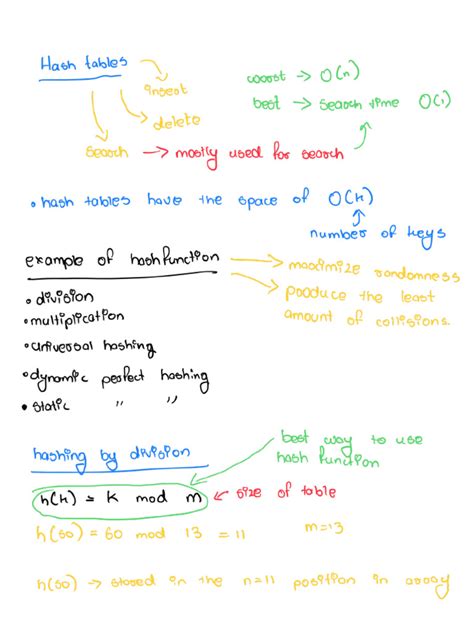 Hash tables
insert
delete
search → mostly used for search
worst → O(n)
best → search time O(1)
• hash tables have the space of O(k)
number of keys
example of hashfunction
→ maximize randomness
→ produce the least
amount of collisions.
• division
• multiplication
• universal hashing
• dynamic perfect hashing
• static " "
hashing by division
best way to use
hash function
h(k) = k mod m ← size of table
h(50) = 60 mod 13 = 11 m=13
h(50) → stored in the n=11 position in array